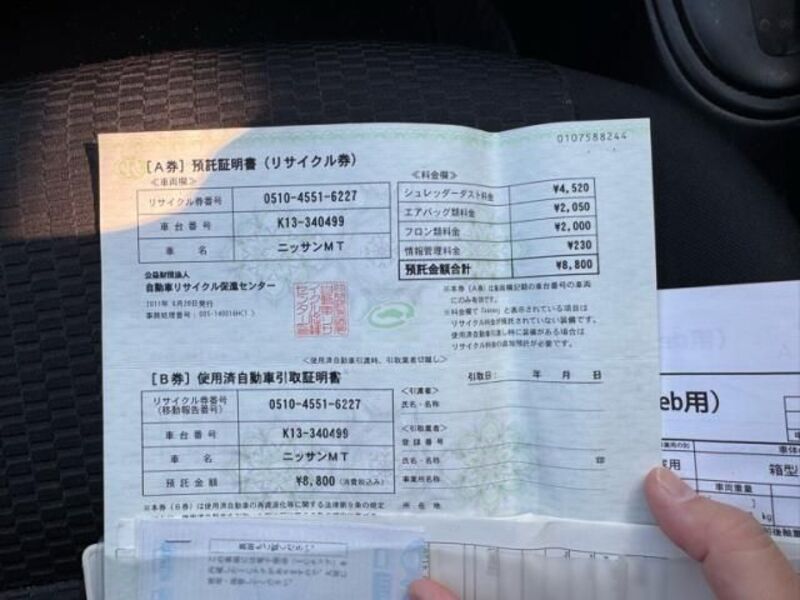 0107588244
[A券] 預託証明書（リサイクル券）
≪車両欄≫
リサイクル券番号 0510-4551-6227
車台番号 K13-340499
車名 ニッサンMT
≪料金欄≫
シュレッダーダスト料金 ¥4,520
エアバッグ類料金 ¥2,050
フロン類料金 ¥2,000
情報管理料金 ¥230
預託金額合計 ¥8,800
公益財団法人
自動車リサイクル促進センター
※本券（A券）は車両欄記載の車台番号の車両
にのみ有効です。
リサイクル料金が預託されていない装備です。
使用済自動車引渡し時に装備がある場合は
リサイクル料金の追加預託が必要です。
＜使用済自動車引渡時、引取業者切離し＞
[B券] 使用済自動車引取証明書
引取日: 年 月 日
リサイクル券番号
(移動報告番号) 0510-4551-6227
車台番号 K13-340499
車名 ニッサンMT
預託金額 ¥8,800 (消費税込み)
＜引渡者＞
氏名・名称
＜引取業者＞
登録番号
氏名・名称
事業所名称
所在地
※本券（B券）は使用済自動車の再資源化等に関する法律第9条の規定
eb用)
箱型
車両重量
kg